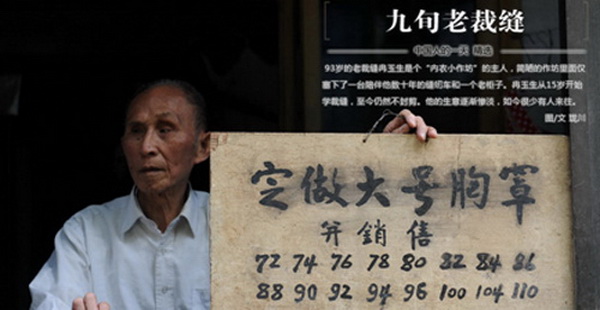 九旬老裁缝
中国人的一天 精选
93岁的老裁缝冉玉生是个“内衣小作坊”的主人,简陋的作坊里面仅
塞下了一台陪伴他数十年的缝纫车和一个老柜子。冉玉生从15岁开始
学裁缝,至今仍然不封剪。他的生意逐渐惨淡,如今很少有人来往。
图/文 珑川
定做大号胸罩
并銷售
72 74 76 78 80 82 84 86
88 90 92 94 96 100 104 110